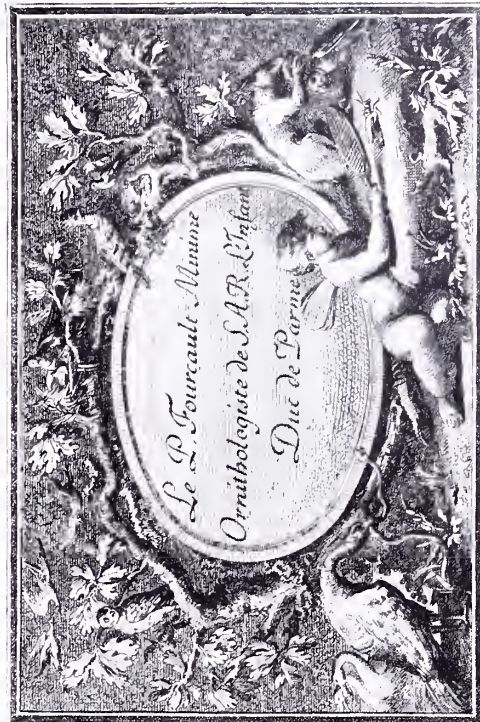 Le P. Fourcault Minime
Ornithologiste de S.A.R. L'Infant
Duc de Parme